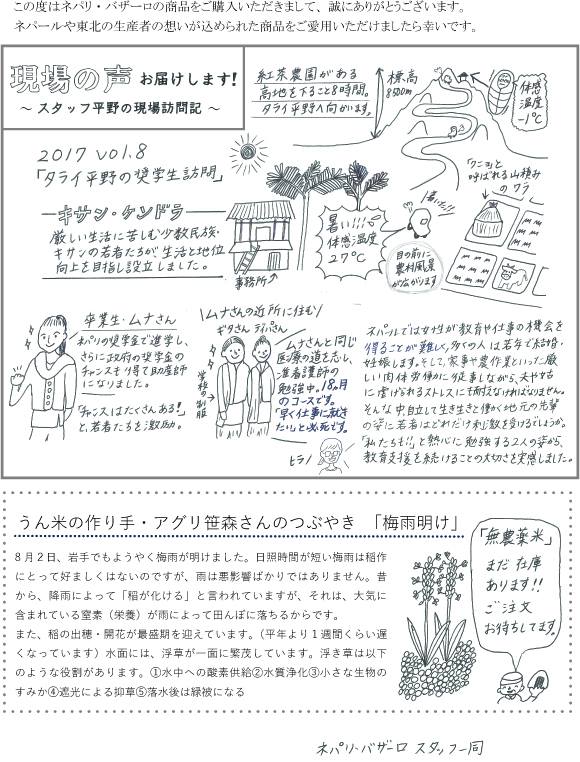 この度はネパリ・バザーロの商品をご購入いただきまして、誠にありがとうございます。
ネパールや東北の生産者の想いが込められた商品をご愛用いただけましたら幸いです。
現場の声 お届けします!
～ スタッフ平野の現場訪問記 ～
2017 vol.8
「タライ平野の奨学生訪問」
紅茶農園がある
高地を下ること8時間。
タライ平野へ向かいます。
標高
体感
温度
-1℃
キサン・ケンドラ
厳しい生活に苦しむ少数民族・
キサンの若者たちが生活と地位
向上を目指し設立しました。
事務所
暑い!!!
体感温度
27℃
暑い!!!
目の前に
農村風景
が広がります
「クニョ」と
呼ばれる山積み
のワラ
卒業生・ムナさん
ネパリの奨学金で進学し、
さらに政府の奨学金の
チャンスも得て助産師
になりました。
「チャンスはたくさんある!」
と、若者たちを激励。
ムナさんの近所に住む
ギタさん
学校の制服
ムナさんと同じ
医療の道を志し、
准看護師の
勉強中。18ヶ月
のコースです。
「早く仕事に就き
たい」と必死です。
ヒラノ
ネパールでは女性が教育や仕事の機会を
得ることが難しく、多くの人は若年で結婚・
妊娠します。そして、家事や農作業といった厳
しい肉体労働に従事しながら、夫やその
に虐げられるストレスにも耐えなければなりません。
そんな中、自立して生き生きと働く地元の先輩
の姿に若者はどれだけ刺激を受けるでしょうか。
「私たちも!!」と熱心に勉強する2人の姿から、
教育支援を続けることの大切さを実感しました。
うん米の作り手・アグリ笹森さんのつぶやき 「梅雨明け」
８月２日、岩手でもようやく梅雨が明けました。日照時間が短い梅雨は稲作
にとって好ましくはないのですが、雨は悪影響ばかりではありません。昔
から、降雨によって「稲が化ける」と言われていますが、それは、大気に
含まれている窒素（栄養）が雨によって田んぼに落ちるからです。
また、稲の出穂・開花が最盛期を迎えています。（平年より１週間くらい遅
くなっています）水面には、浮草が一面に繁茂しています。浮き草は以下
のような役割があります。①水中への酸素供給②水質浄化③小さな生物の
すみか④遮光による抑草⑤落水後は緑被になる
「無農薬米」
まだ在庫
あります!!
ご注文
お待ちしてます。
ネパリ・バザーロ スタッフ一同